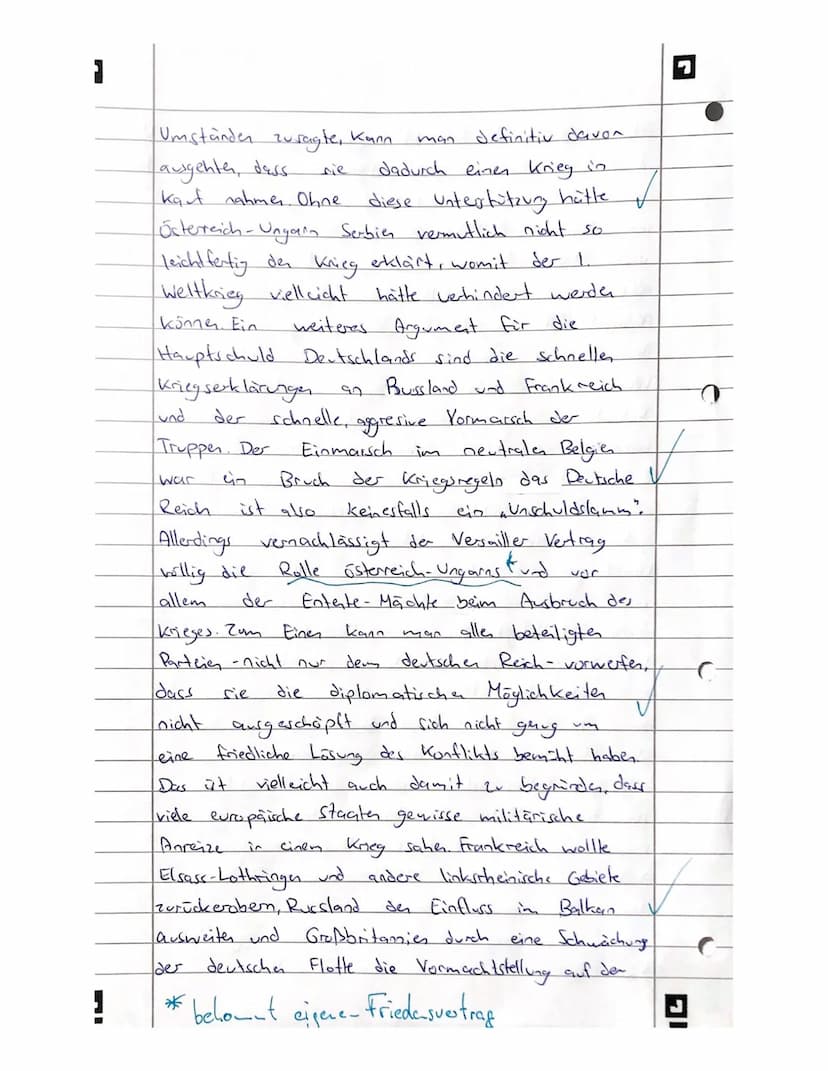 Umständen zusagte, kann man definitiv davon
ausgehten, dass sie dadurch einen Krieg in
Kauf nahmen. Ohne diese Unterstützung hätte
Österreich-Ungarn Serbien vermutlich nicht so
leichtfertig den Krieg erklärt, womit der 1.
Weltkrieg vielleicht hätte verhindert werden
können. Ein weiteres Argument für die
Hauptschuld Deutschlands sind die schnellen
Kriegserklärungen an Russland und Frankreich
und der schnelle, aggresive Vormarsch der
Truppen. Der Einmarsch im neutralen Belgien
war ein Bruch der Kriegsregeln das Deutsche
Reich ist also keinesfalls ein „Unschuldslamm".
Allerdings vernachlässigt der Versailler Vertrag
völlig die Rolle Österreich-Ungarns * und vor
allem der Entente-Mächte beim Ausbruch des
Krieges. Zum Einen kann man allen beteiligten
Parteien - nicht nur dem deutschen Reich - vorwerfen,
dass sie die diplomatischen Möglichkeiten
nicht ausgeschöpft und sich nicht genug um
eine friedliche Lösung des Konflikts bemüht haben.
Das ist vielleicht auch damit zu begründen, dass
viele europäische Staaten gewisse militärische
Anreize in einen Krieg sahen. Frankreich wollte
Elsass-Lothringen und andere linksrheinische Gebiete
zurückerobern, Russland den Einfluss im Balkan
ausweiten und Großbritannien durch eine Schwächung
der deutschen Flotte die Vormachtstellung auf den
* bekommt eigenen Friedensvertrag